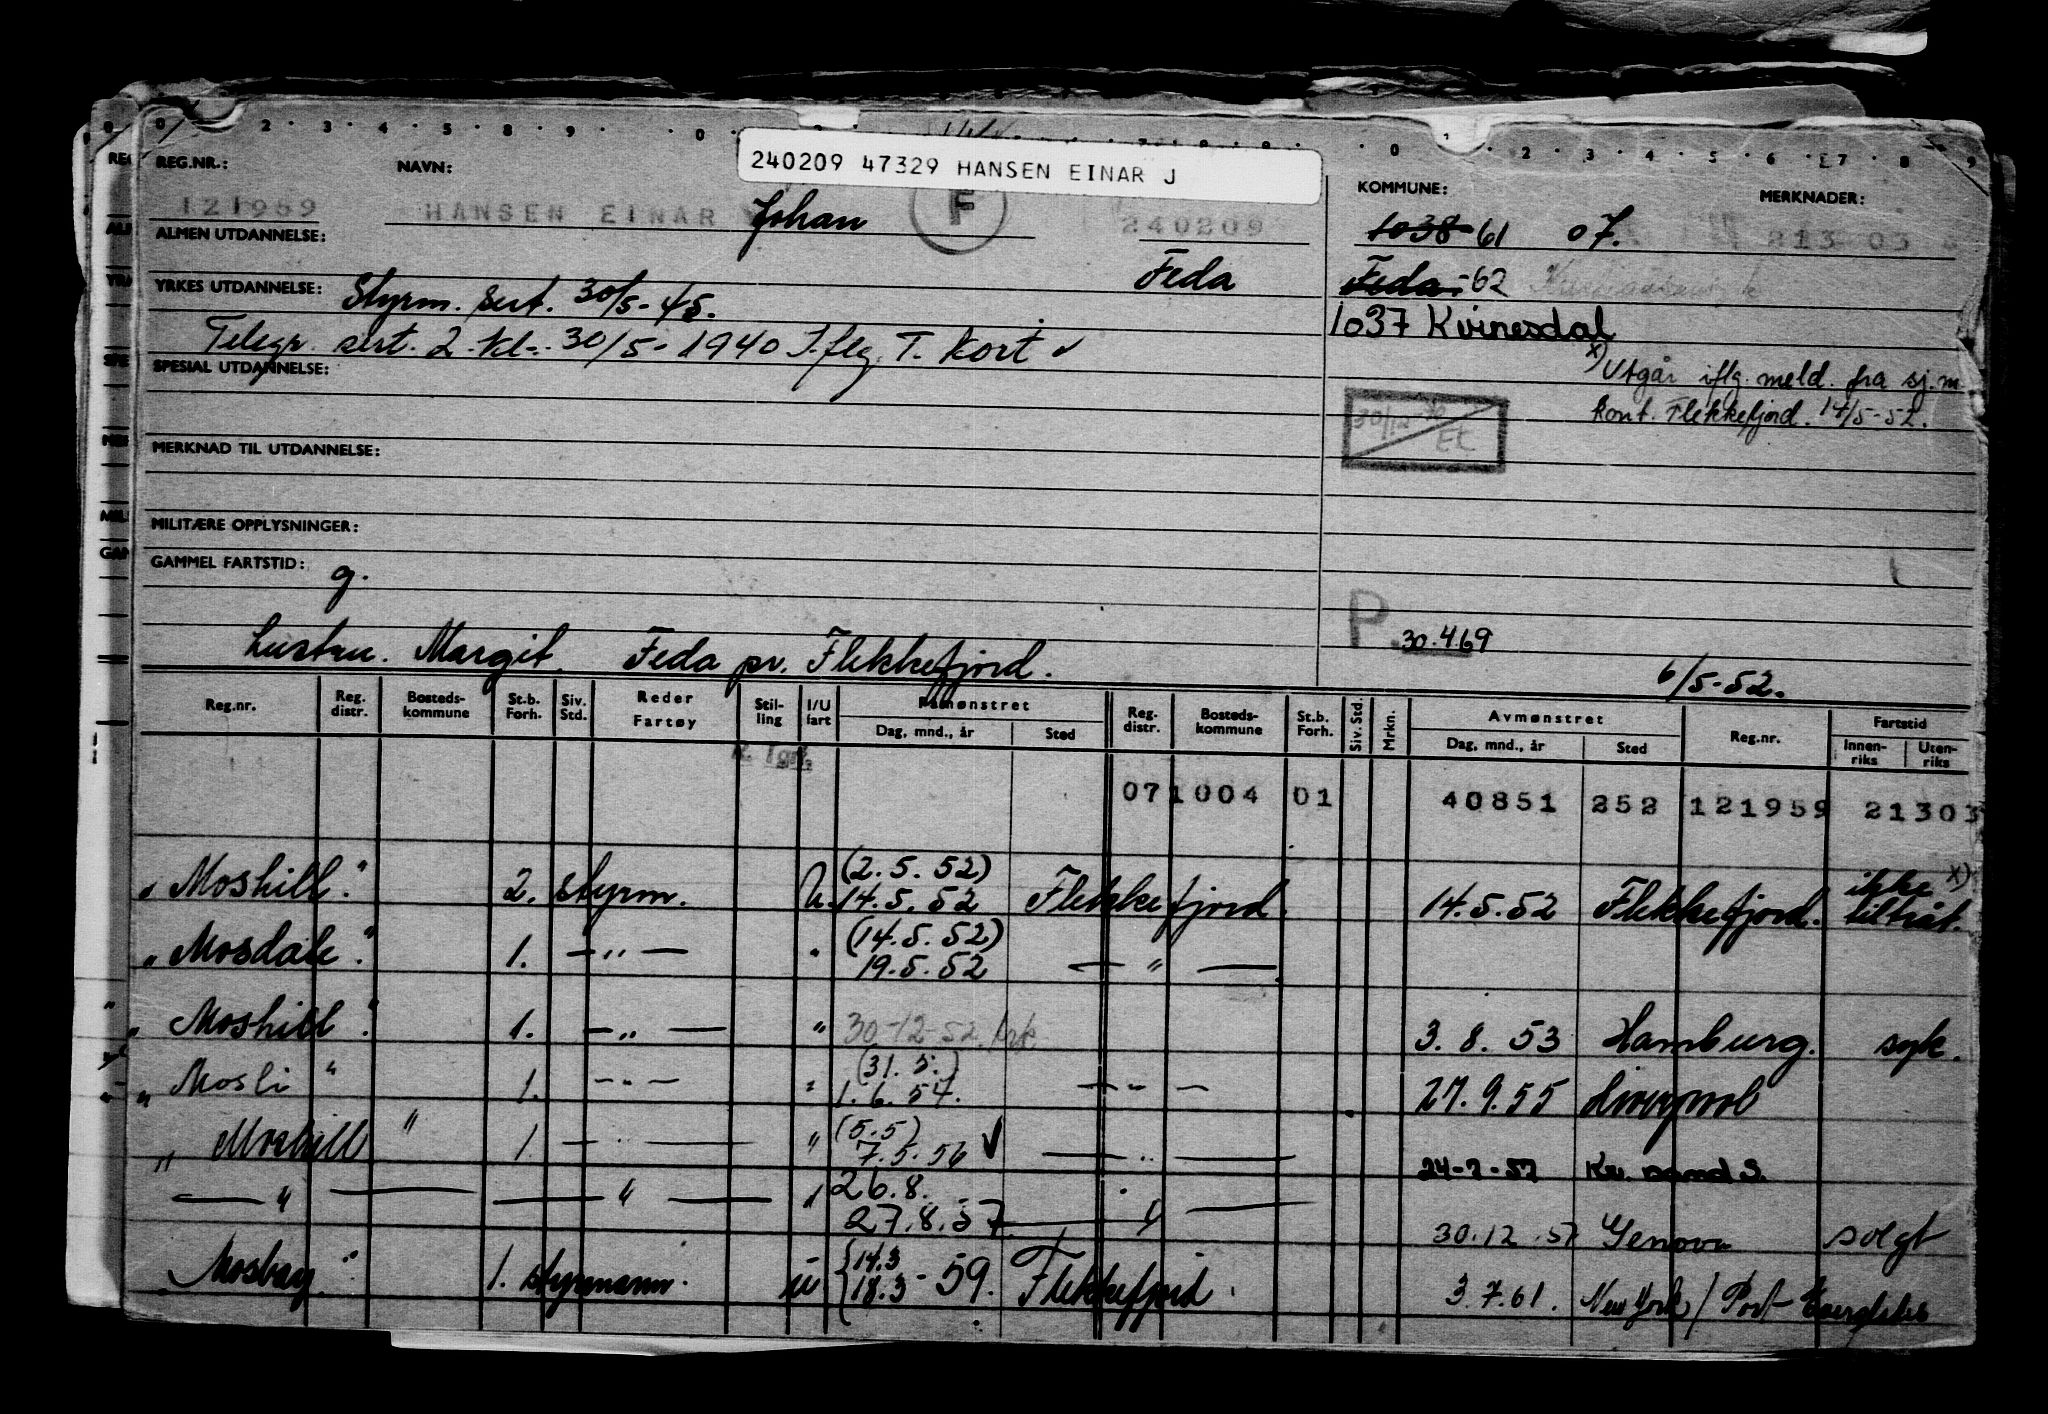 240209 47329 HANSEN EINAR J
REG.NR.: NAVN: KOMMUNE: MERKNADER:
121959 HANSEN EINAR Johan F 240209 1038-61 07. 213 03
ALMEN UTDANNELSE: Feda Feda-62
YRKES UTDANNELSE: Styrm. sert. 30/5-45. 1037 Kvinesdal
Telegr. sert. 2. kl. 30/5-1940 I.flg. T. kort ✓
x) Utgår iflg. meld. fra sj.m.
kont. Flekkefjord. 14/5-52.
SPESIAL UTDANNELSE:
30/12-
MERKNAD TIL UTDANNELSE:
MILITÆRE OPPLYSNINGER:
GAMMEL FARTSTID:
g.
P. 30.4.69
Hustru. Margit. Feda pr. Flekkefjord. 6/5-52.
Reg.nr. Reg. distr. Bosteds-kommune St.b. Forh. Siv. Std. Reder Fartøy Stil-ling I/U fart Påmønstret Dag, mnd., år Sted Reg. distr. Bosteds-kommune St.b. Forh. Siv. Std. Mrkn. Avmønstret Dag, mnd., år Sted Reg.nr. Fartstid Innen-riks Uten-riks
071004 01 40851 252 121959 21303
"Moshill" 2. styrm. U. (2.5.52) 14.5.52 Flekkefjord. 14.5.52 Flekkefjord. ikke tiltråt. x)
"Mosdale" 1. — " — " (14.5.52) 19.5.52 — " —
"Moshill" 1. — " — " 30-12-52 3.8.53 Hamburg. syk.
"Mosli" 1. — " — " (31.5.) 1.6.54. — " — 27.9.55 Liverpool
"Moshill" 1 — " — " (5.5) 7.5.56 ✓ — " — 24-7-57 Kr. sand S.
— " — — " — " 26.8. 27.8.57 — " — 30.12.57 Genova solgt
"Mosbay" 1. styrmann. u {14.3 18.3-59. Flekkefjord. 3.7.61. New York / Port